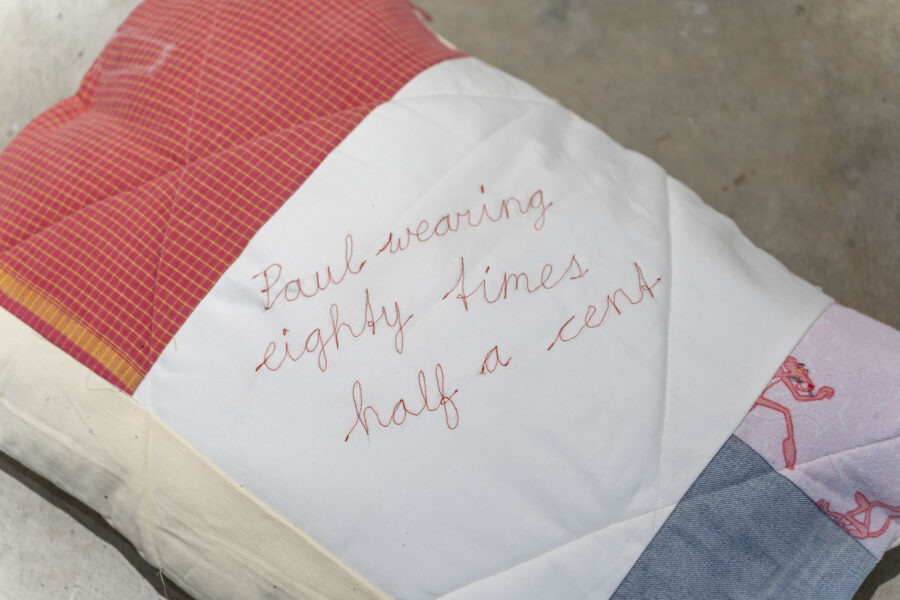 Paul wearing
eighty times
half a cent